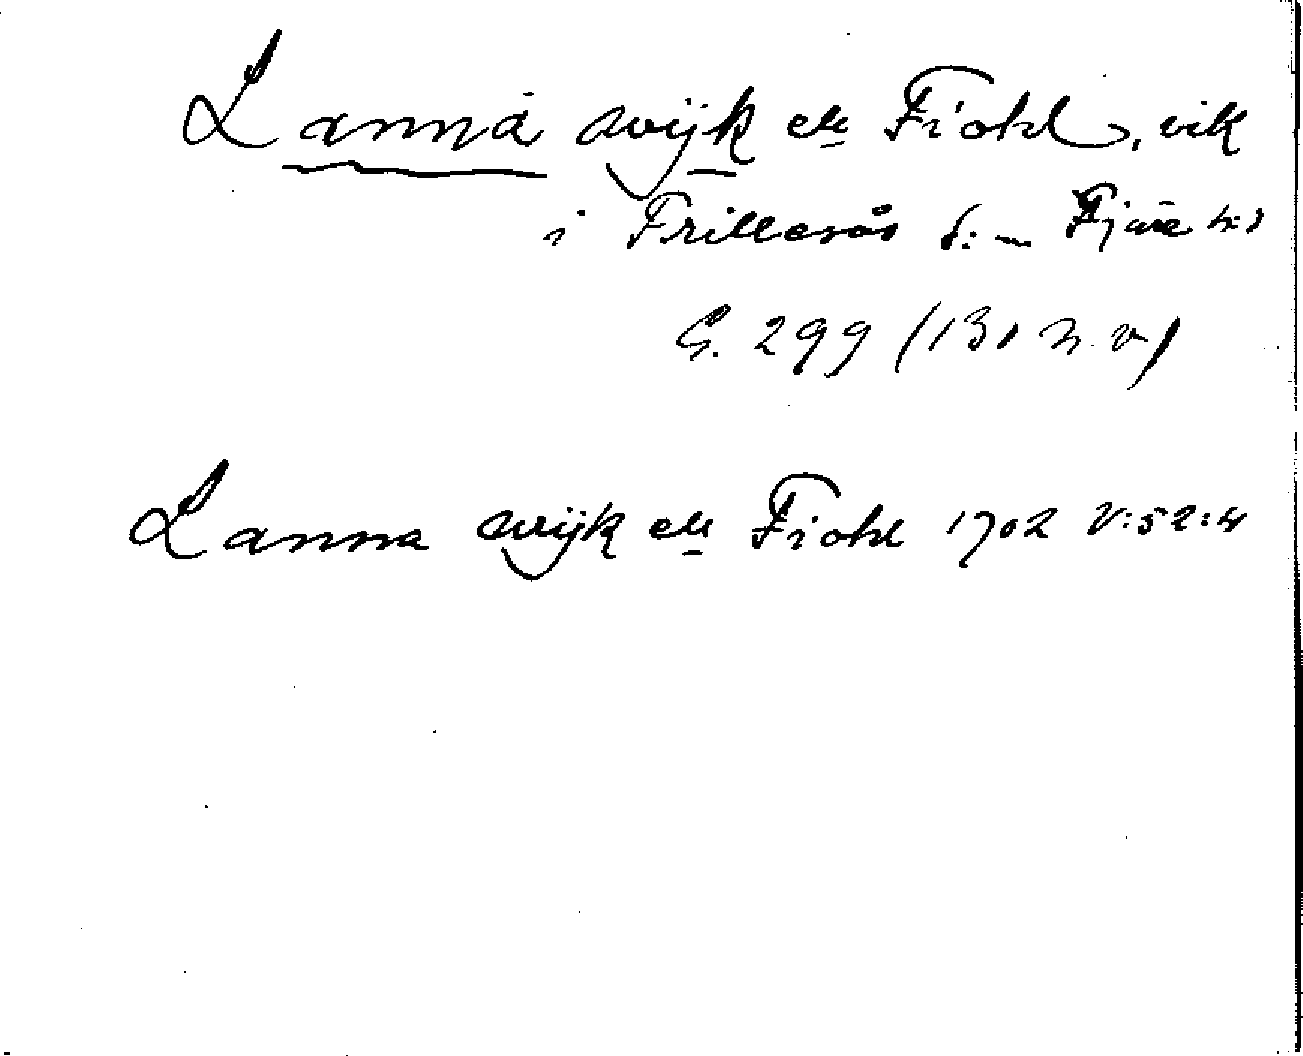 Lanna wijk el: Fiohl, vik
i Frillesås s:n Fjäre hd
G. 299 (131 n. v)
Lanna wijk ell Fiohl 1702 V:52:4